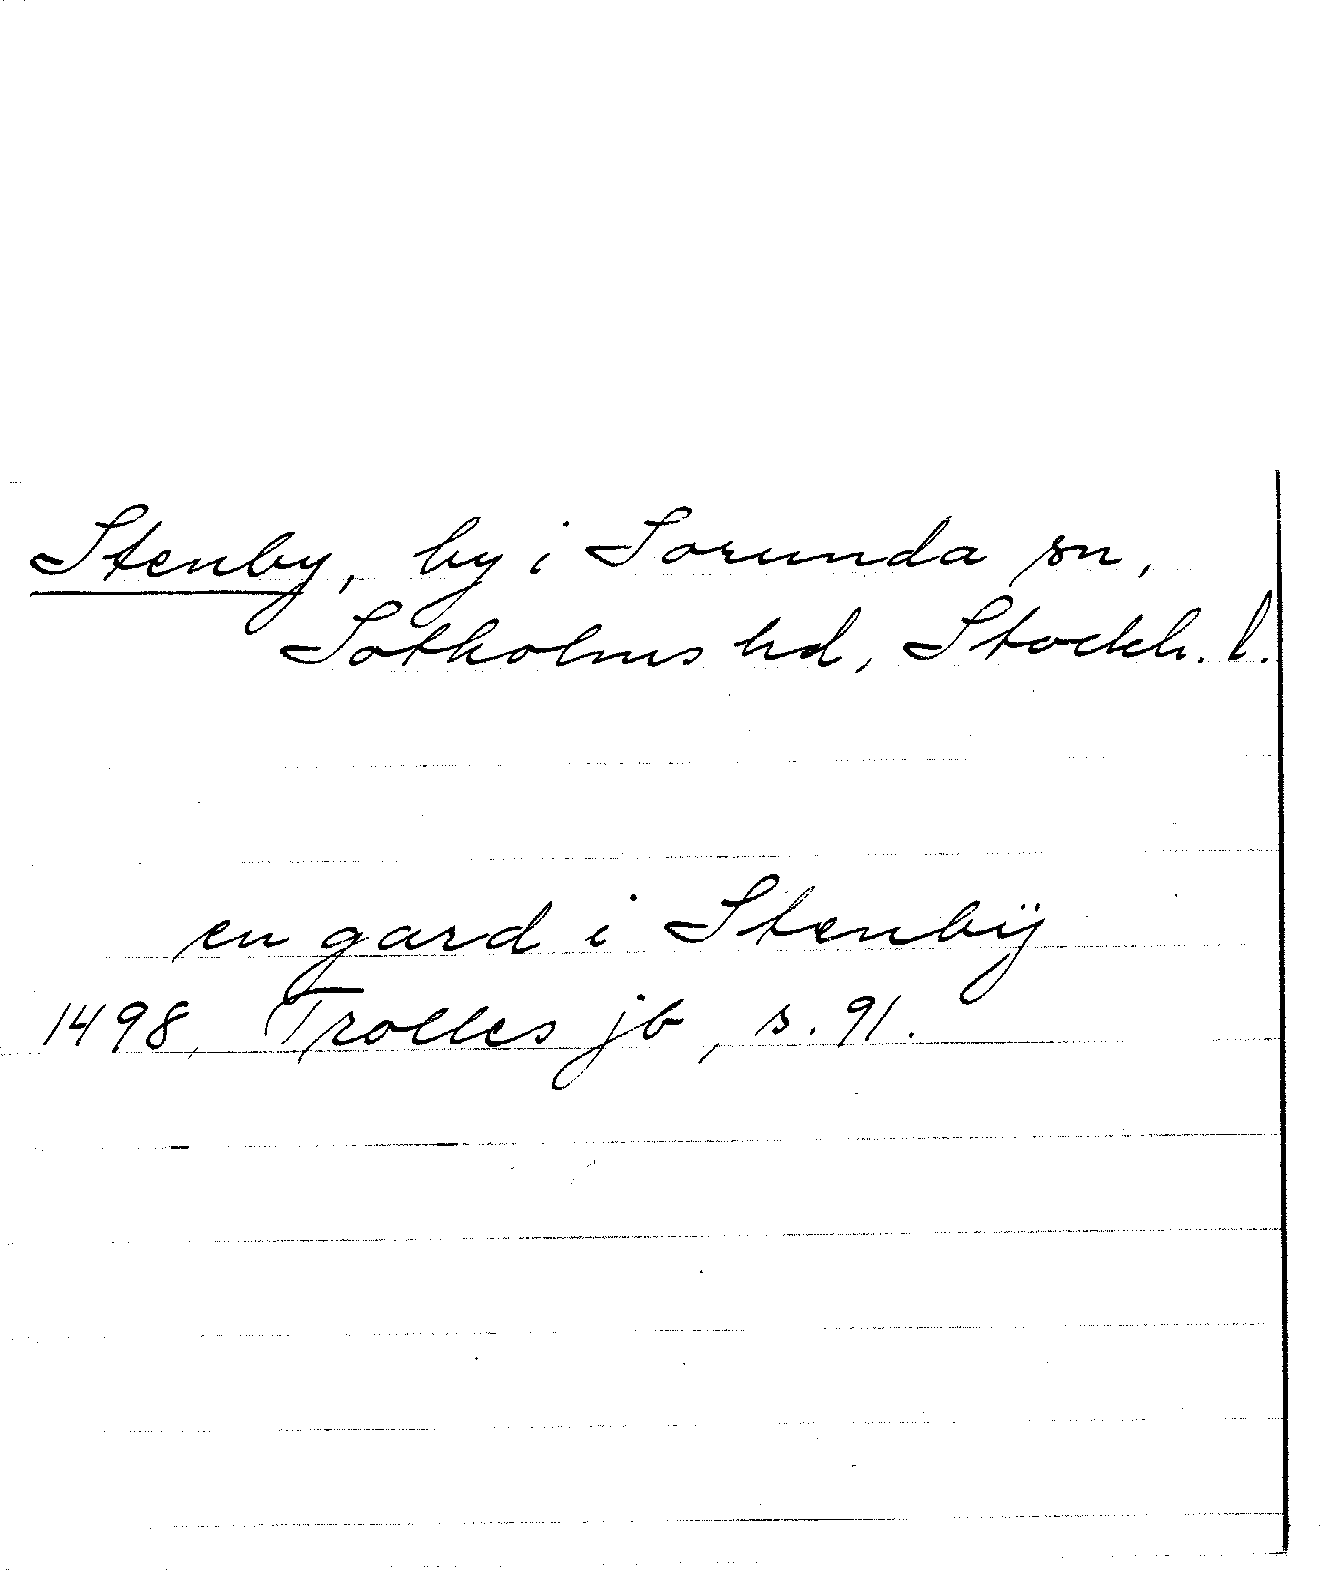 Stenby, by i Sorunda sn,
Sotholms hd, Stockh. l.
en gard i Stenbÿ
1498, Trolles jb, s. 91.